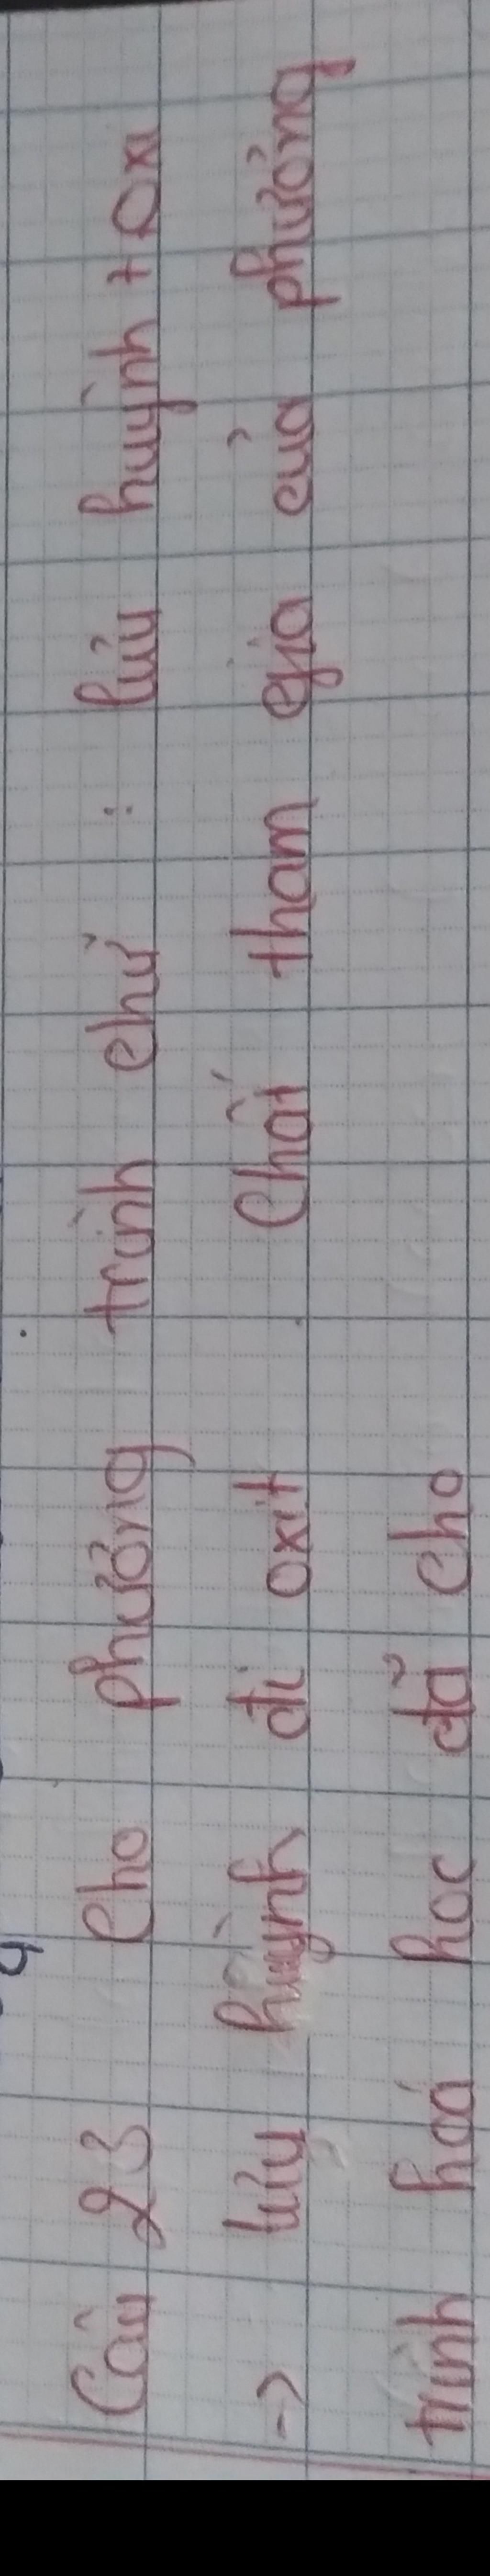 Câu 23 Cho phương trình chữ : lưu huỳnh + Oxi
-> lưu huỳnh đi oxit Chất tham gia của phương
trình hoá học đã cho